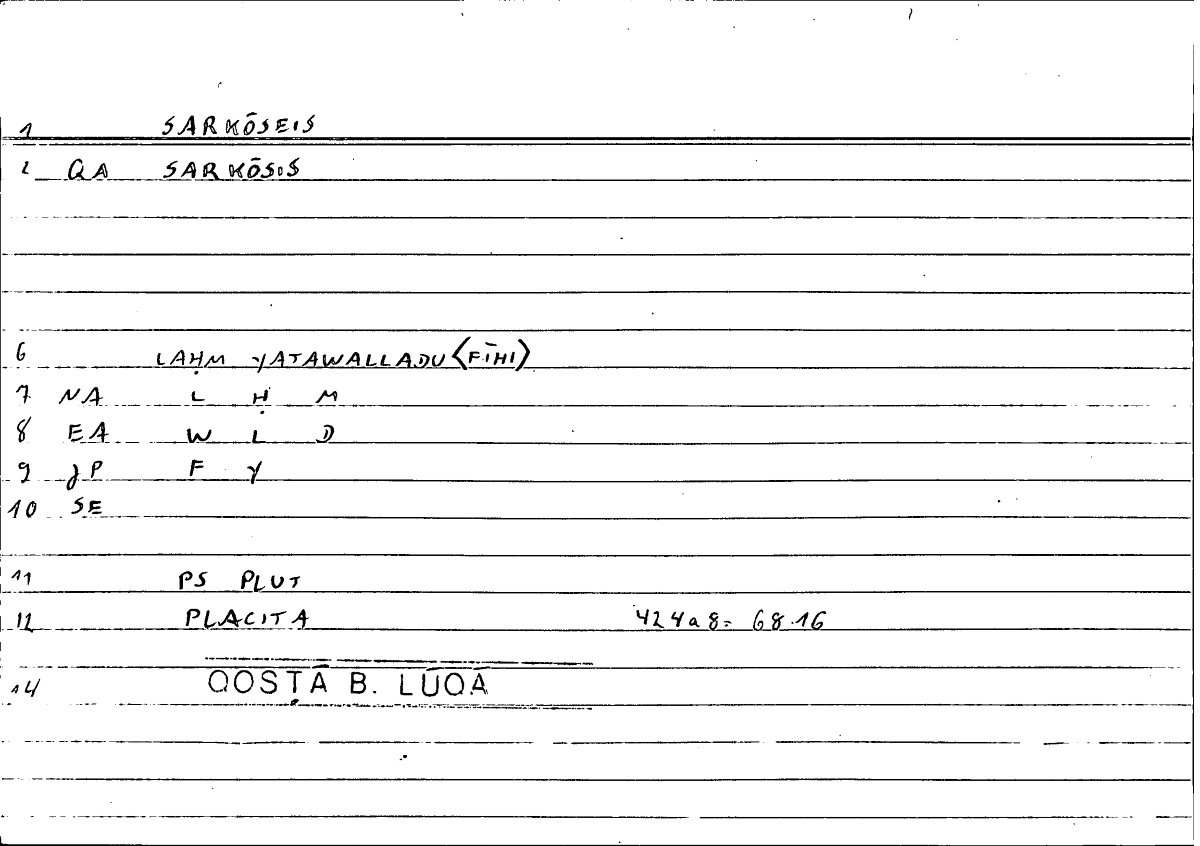 1 SARKŌSEIS
2 QA SARKŌSIS
6 LAḤM YATAWALLADU 〈FĪHI〉
7 NA L Ḥ M
8 EA W L D
9 JP F Y
10 SE
11 PS PLUT
12 PLACITA 424a8= 68.16
14 QOSṬĀ B. LŪQĀ